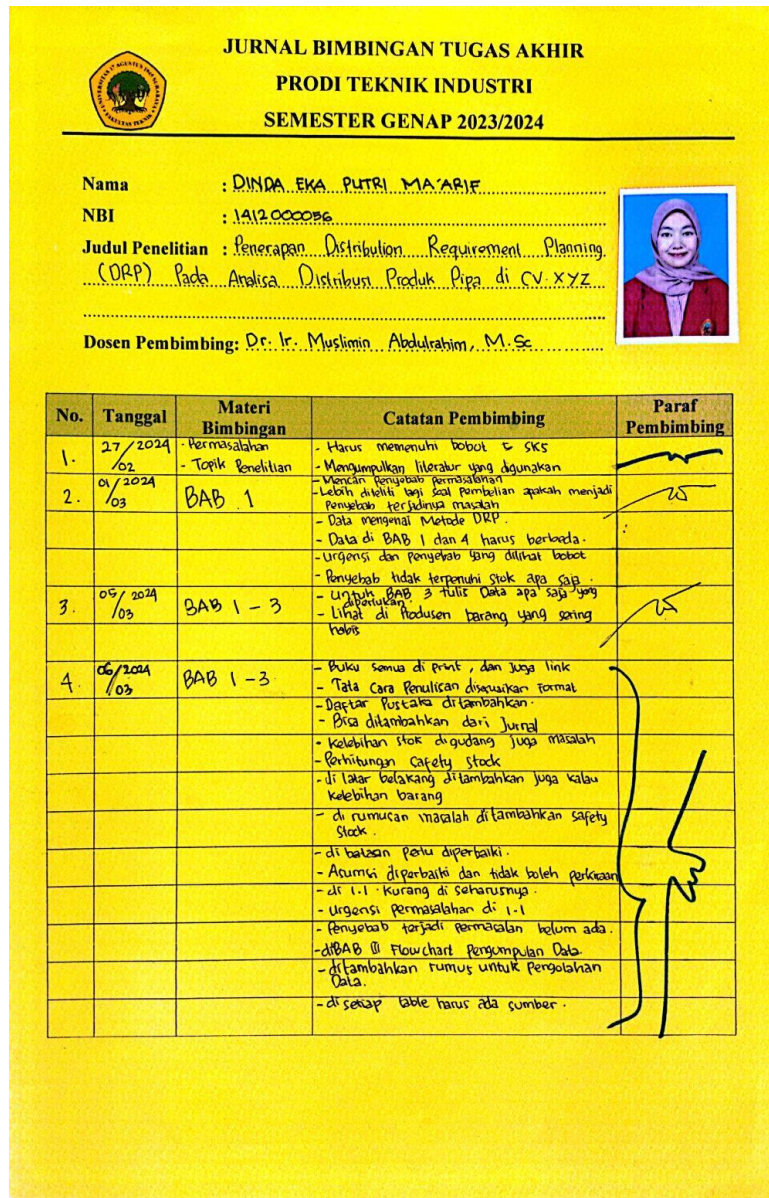 JURNAL BIMBINGAN TUGAS AKHIR
PRODI TEKNIK INDUSTRI
SEMESTER GENAP 2023/2024
UNIVERSITAS 17 AGUSTUS 1945 SURABAYA
FAKULTAS TEKNIK
Nama : DINDA EKA PUTRI MA'ARIF
NBI : 1412000056
Judul Penelitian : Penerapan Distribution Requirement Planning
(DRP) Pada Analisa Distribusi Produk Pipa di CV. XYZ
Dosen Pembimbing: Dr. Ir. Muslimin Abdulrahim, M.Sc
No. Tanggal Materi Bimbingan Catatan Pembimbing Paraf Pembimbing
1. 27/2024 /02 - Permasalahan - Harus memenuhi bobot 5 SKS
- Topik Penelitian - Mengumpulkan literatur yang digunakan
- Mencari Penyebab permasalahan
2. 01/2024 /03 BAB 1 - Lebih diteliti lagi soal pembelian apakah menjadi
Penyebab terjadinya masalah
- Data mengenai Metode DRP.
- Data di BAB 1 dan 4 harus berbeda.
- urgensi dan penyebab yang dilihat bobot
- Penyebab tidak terpenuhi stok apa saja.
3. 05/2024 /03 BAB 1 - 3 - Untuk BAB 3 tulis Data apa saja yang
diperlukan.
- Lihat di Produsen barang yang sering
habis
4. 06/2024 /03 BAB 1 - 3 - Buku semua di print, dan juga link
- Tata Cara Penulisan disesuaikan Format
- Daftar Pustaka ditambahkan.
- Bisa ditambahkan dari Jurnal
- Kelebihan stok digudang juga masalah
- Perhitungan Safety Stock
- di latar belakang ditambahkan juga kalau
kelebihan barang
- di rumusan masalah ditambahkan safety
Stock.
- di batasan perlu diperbaiki.
- Asumsi diperbaiki dan tidak boleh perkiraan
- di 1.1 kurang di seharusnya.
- urgensi permasalahan di 1-1
- Penyebab terjadi permasalan belum ada.
- diBAB III Flowchart Pengumpulan Data.
- ditambahkan rumus untuk Pengolahan
Data.
- di setiap table harus ada sumber.